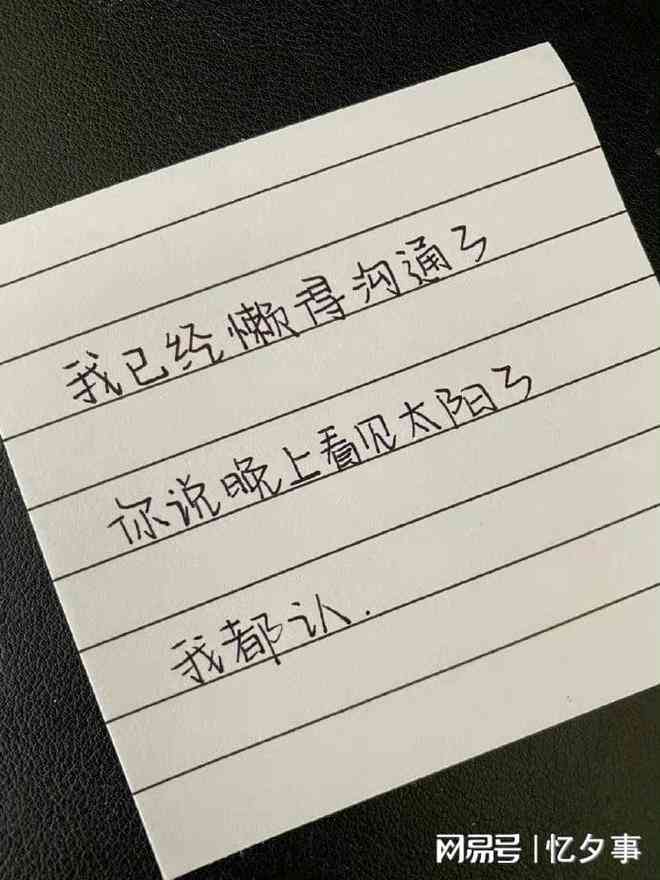 我已经懒得沟通了
你说晚上看见太阳了
我都认.
网易号 | 忆夕事